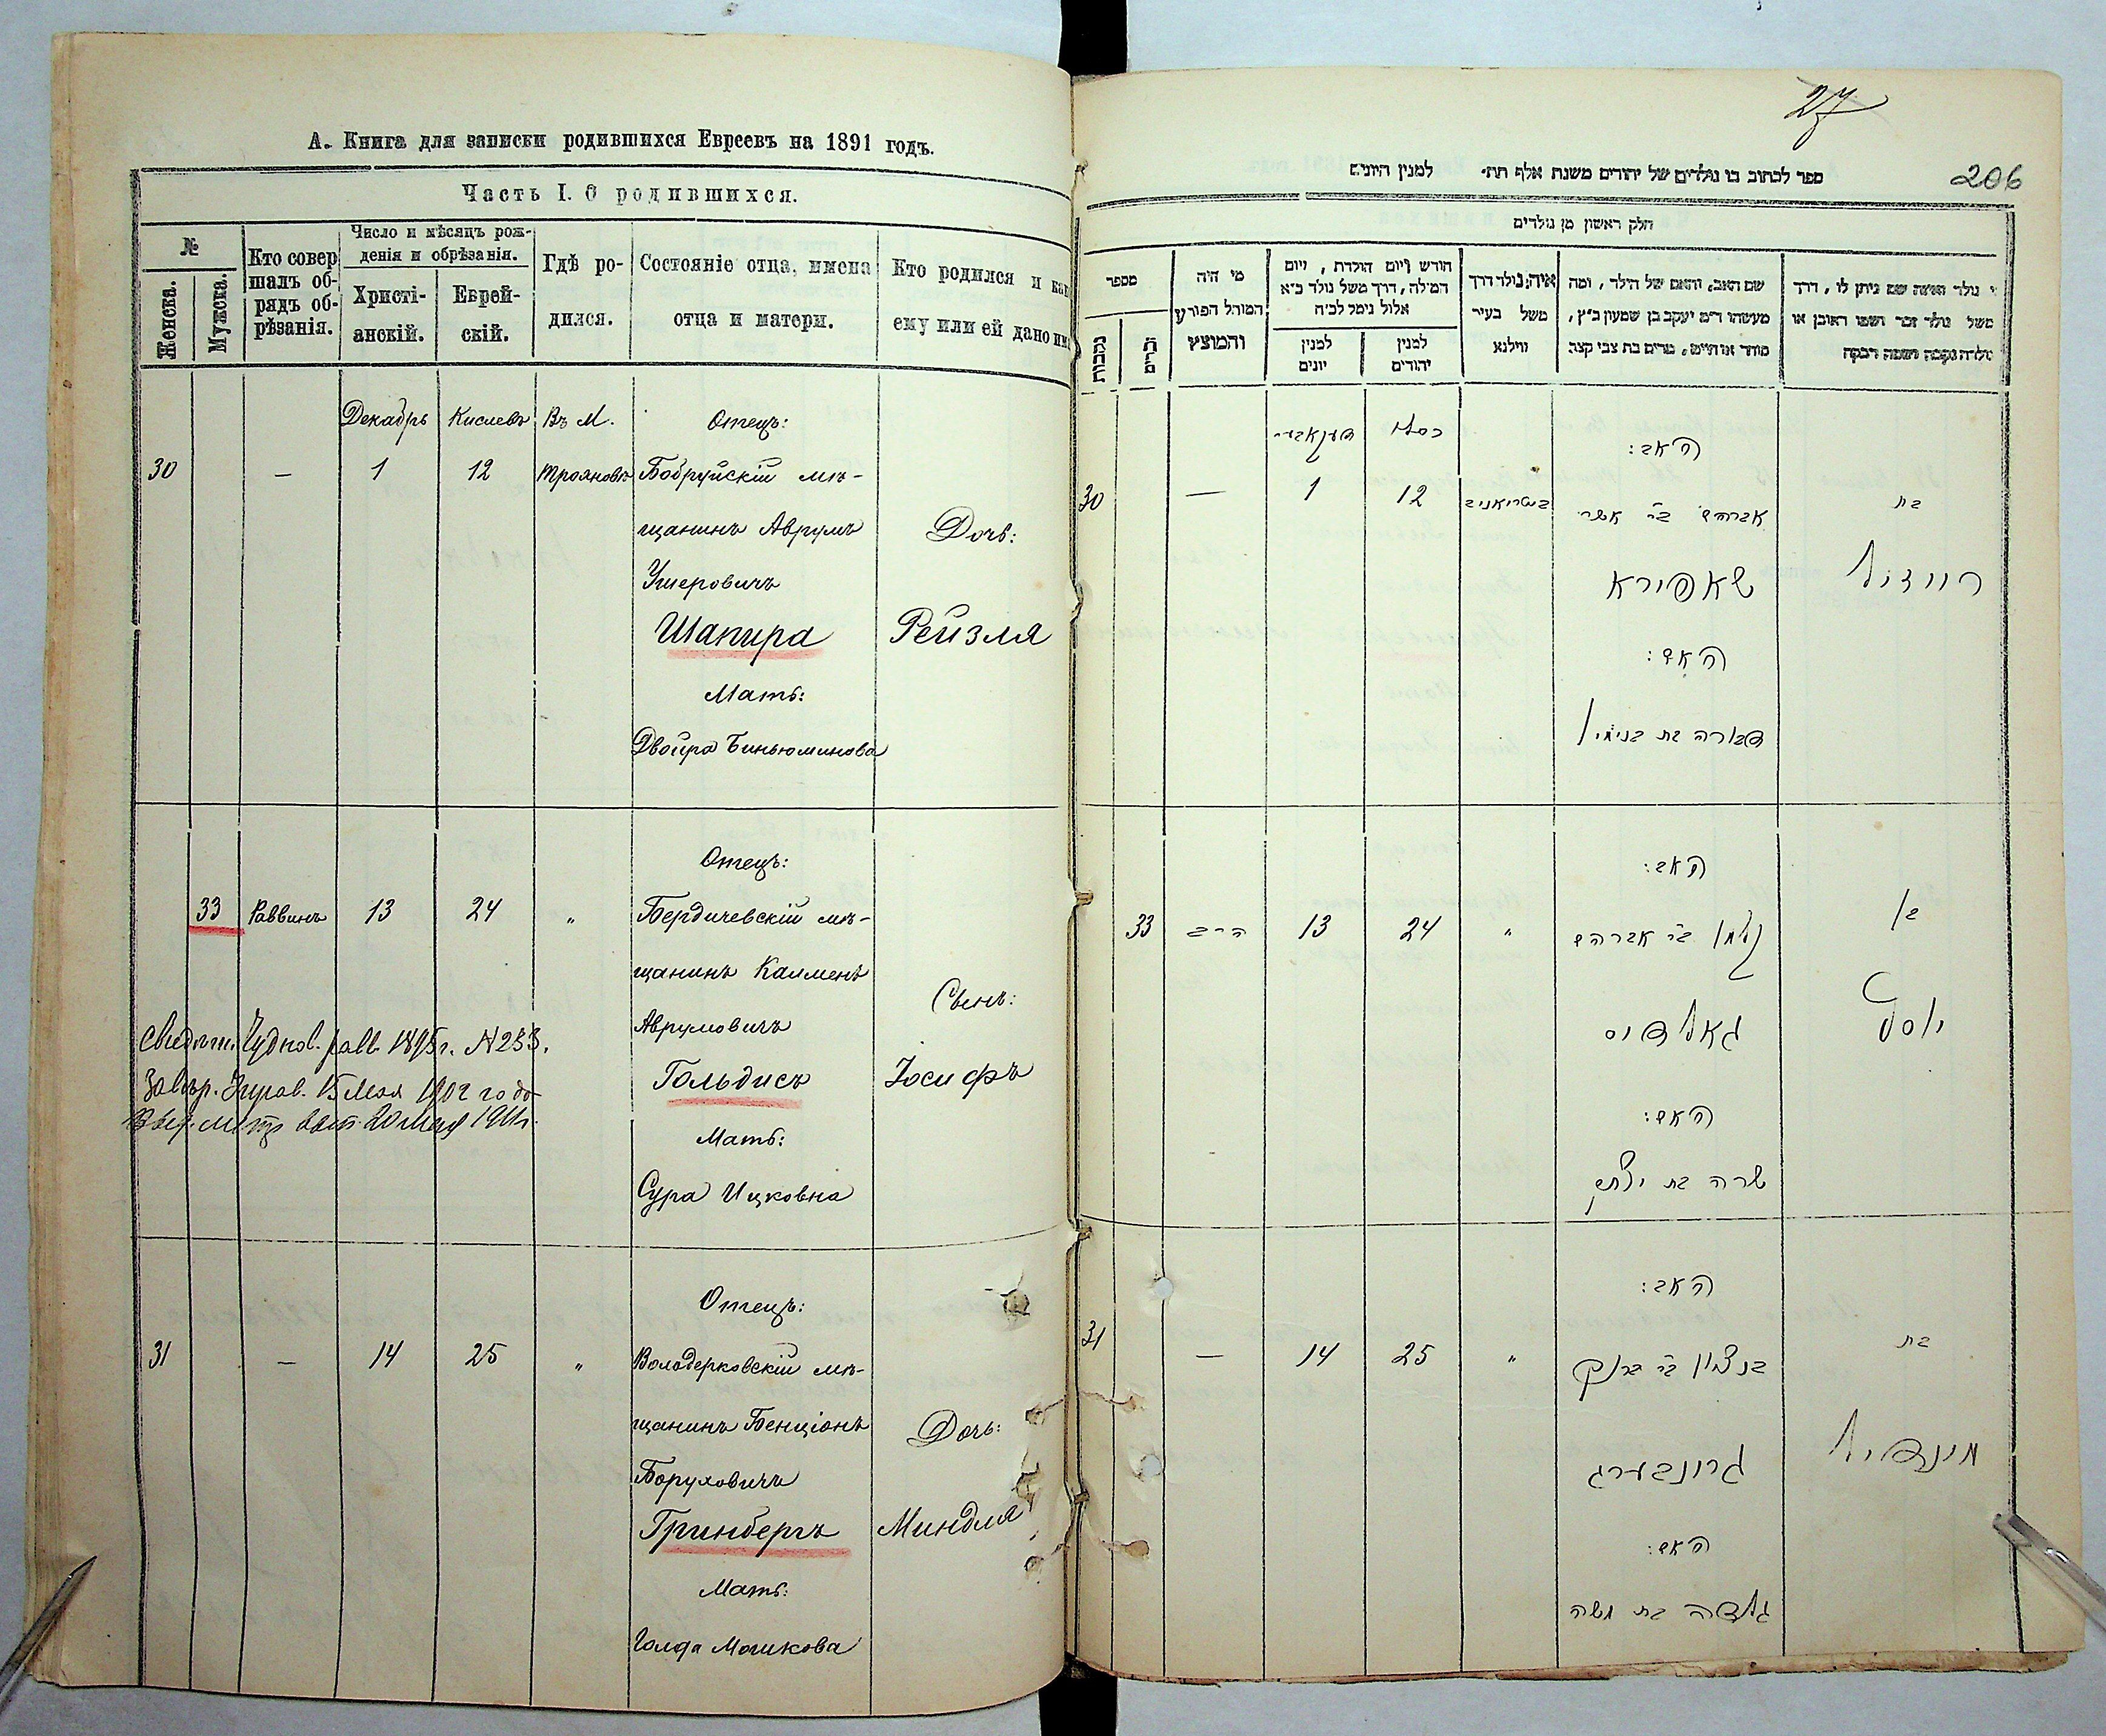 А. Книга для записки родившихся Евреевъ на 1891 годъ.
Часть I. О родившихся.
№
Женска.
Мужска.
Кто совер
шалъ об-
рядъ об-
рѣзанія.
Число и мѣсяцъ рож-
денія и обрѣзанія.
Христі-
анскій.
Еврей-
скій.
Гдѣ ро-
дился.
Состояніе отца, имена
отца и матери.
Кто родился и как
ему или ей дано им
Декабрь Кислевъ Въ М. Отецъ:
30 — 1 12 Трояновѣ Бобруйскій мѣ-
щанинъ Аврумъ
Ушеровичъ
Шапира
Мать:
Двойра Биньюминова
Дочь:
Рейзля
Отецъ:
33 Раввинъ 13 24 „ Бердичевскій мѣ-
щанинъ Калменъ
Аврумовичъ
Гольдисъ
Мать:
Сура Ицковна
Сынъ:
Іосифъ
Свидѣт. Чуднов. равв. 1895 г. N 233.
15 Мая 1902 года
20 Мая 1911 г.
Отецъ:
31 — 14 25 „ Володерковскій мѣ-
щанинъ Бенціонъ
Боруховичъ
Гринбергъ
Мать:
Голда Мошкова
Дочь:
Миндля
27
206
ספר לכתוב בו נולדים של יהודים משנת אלף תת׳ למנין היונים
חלק ראשון מן נולדים
מספר
נקבות
זכרים
מי היה
המוהל הפורע
והמוצץ
חודש ויום הולדת, ויום
המילה, דרך משל נולד כ״א
אלול נימל לכ״ח
למנין
יונים
למנין
יהודים
איה נולד דרך
משל בעיר
ווילנא
שם האב, והאם של הילד, ומה
מעשהו ד״מ יעקב בן שמעון כ״ץ,
סוחר או חייט, מרים בת צבי קצב
י נולד ואיזה שם ניתן לו, דרך
משל נולד זכר ושמו ראובן או
נולדה נקבה ושמה רבקה
דעקאבער כסלו האב:
30 — 1 12 בטריאניב אברהם ב״ר אשר
שאפירא
האם:
דבורה בת בנימין
בת
רייזיל
האב:
33 הרב 13 24 „ קלמן ב״ר אברהם
גאלדיס
האם:
שרה בת יצחק
בן
יוסף
האב:
31 — 14 25 „ בנציון ב״ר ברוך
גרונבערג
האם:
גאלדה בת משה
בת
מינדיל